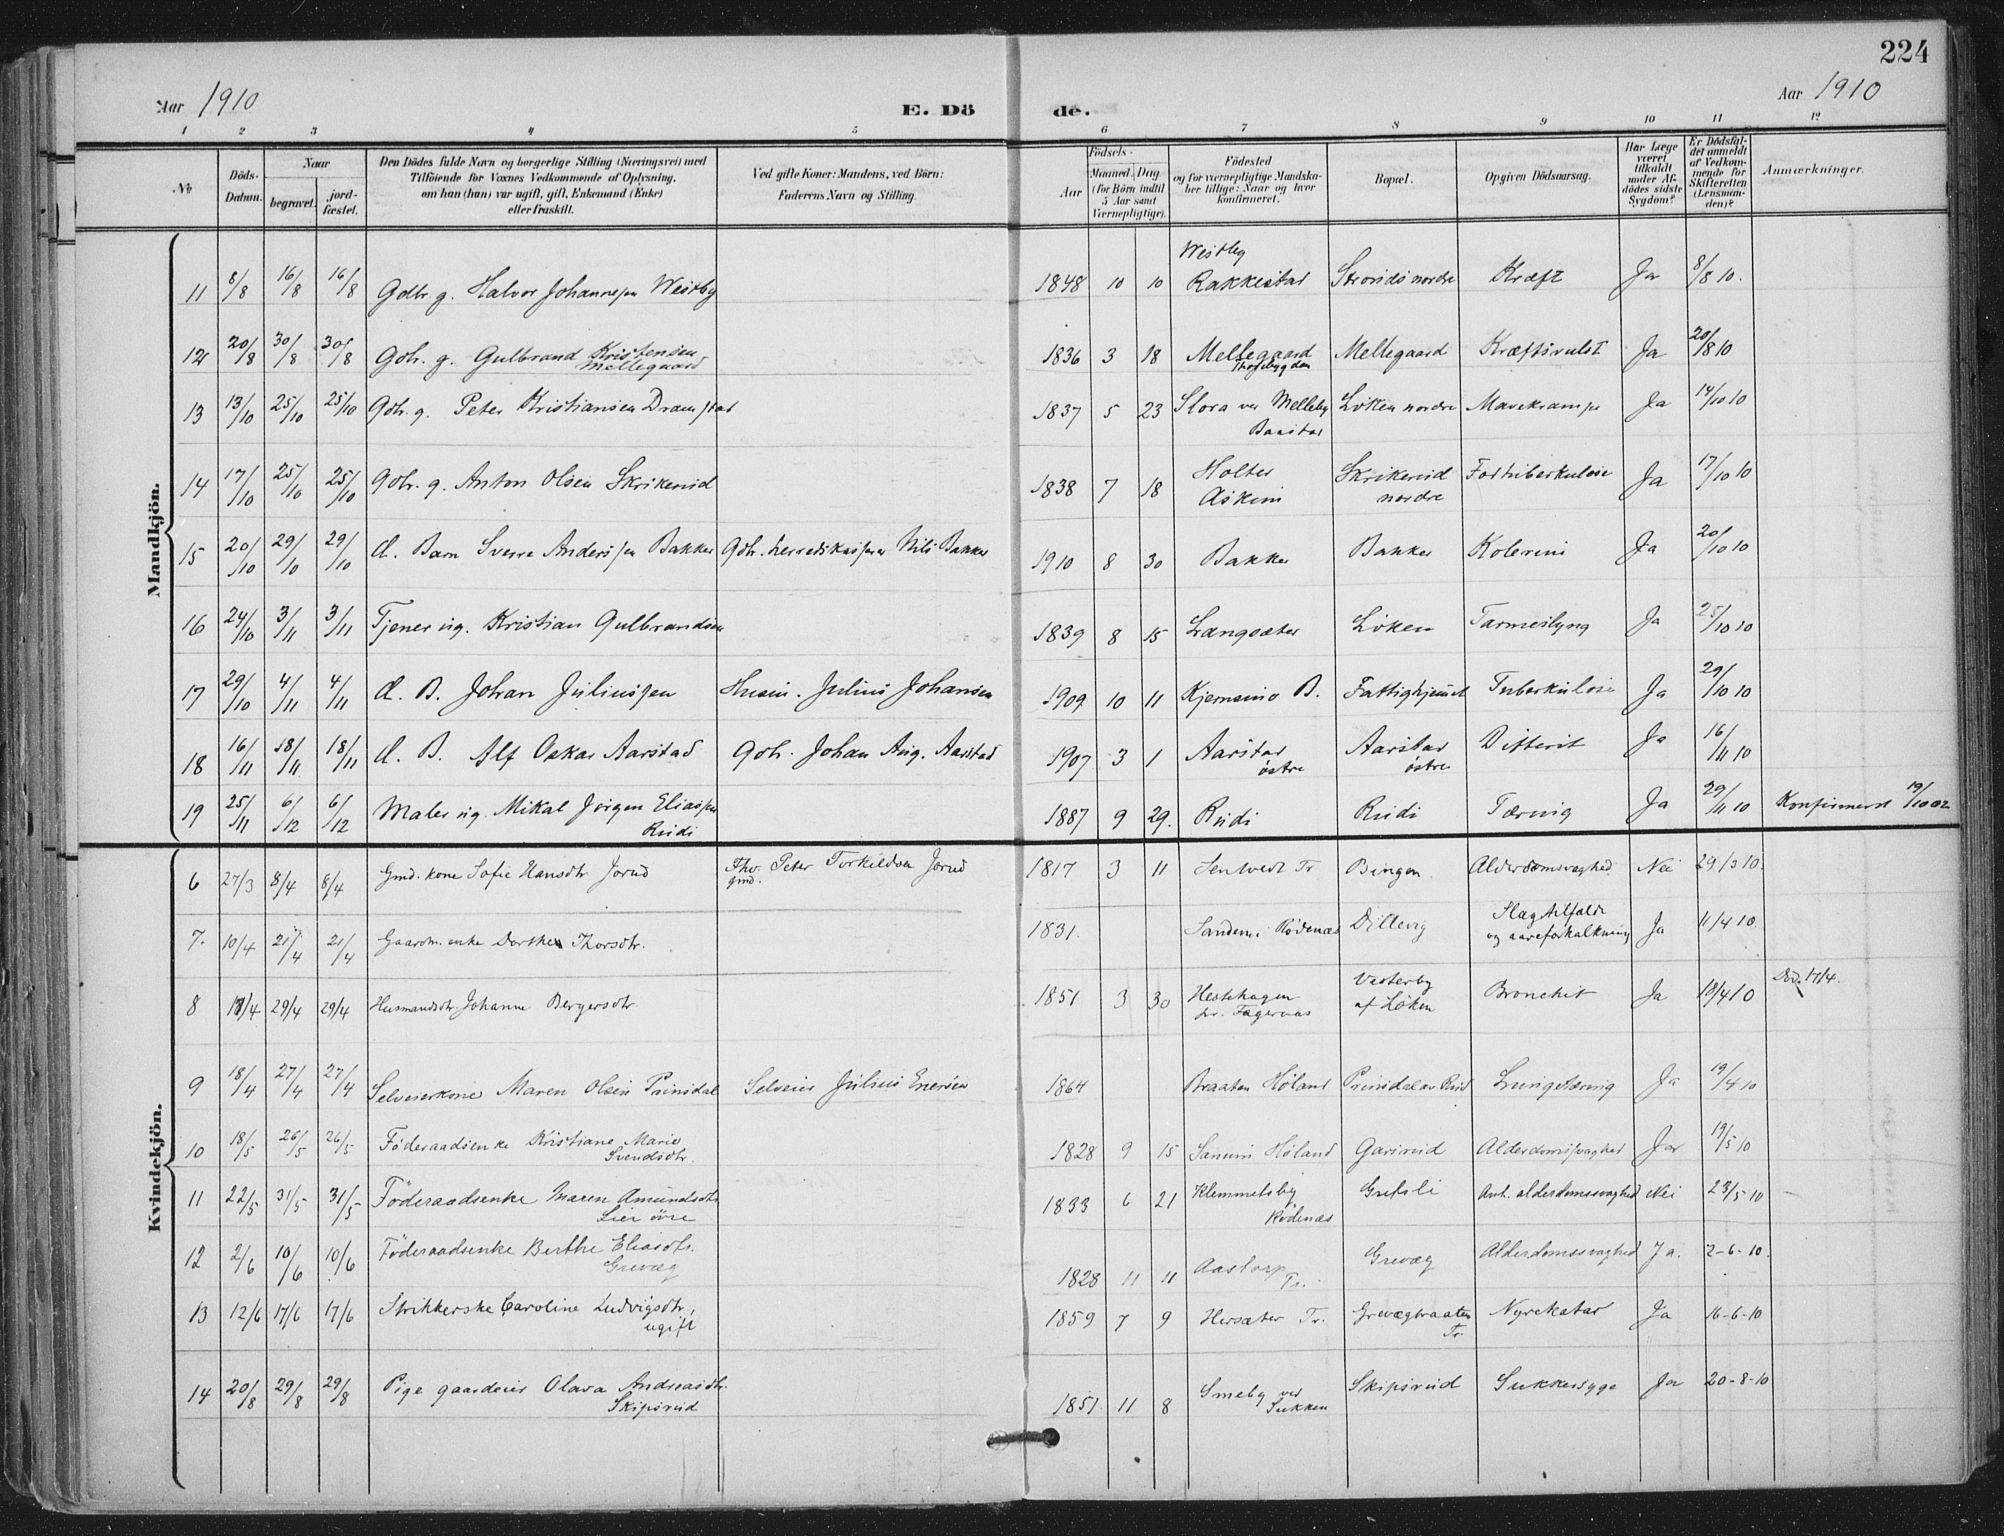 224
Aar 1910
E. Dö
de.
Aar 1910
1 2 3 4 5 6 7 8 9 10 11 12
No
Döds-Datum.
Naar
begravet.
jord-fæstet.
Den Dödes fulde Navn og borgerlige Stilling (Næringsvei) med
Tilföiende for Voxnes Vedkommende af Oplysning,
om han (hun) var ugift, gift, Enkemand (Enke)
eller fraskilt.
Ved gifte Koner: Mandens, ved Börn:
Faderens Navn og Stilling.
Födsels-
Aar
Maaned. Dag.
(for Börn indtil
5 Aar samt
Værnepligtige).
Födested
og for værnepligtige Mandska-
ber tillige: Naar og hvor
konfirmeret.
Bopæl.
Opgiven Dödsaarsag.
Har Læge
været
tilkaldt
under Af-
dödes sidste
Sygdom?
Er Dödsfal-
det anmeldt
af Vedkom-
mende for
Skifteretten
(Lensman-
den)?
Anmærkninger.
Mandkjön.
11 8/8 16/8 16/8 Gdbr. g. Halvor Johannesen Westby 1848 10 10 Westby Rakkestad Strønds nordre Kræft Ja 8/8 10.
12 20/8 30/8 30/8 Gbr. g. Gulbrand Kristensen Mellegaard 1836 3 18 Mellegaard Mellegaard Kræftsvulst Ja 20/8 10
13 13/10 25/10 25/10 Gbr. g. Peter Kristiansen Dramstad 1837 5 23 Slora Melleby Baastad Løken nordre Mavekrampe Ja 14/10 10
14 17/10 25/10 25/10 Gbr. g. Anton Olsen Skrikerud 1838 7 18 Holter Askim Skrikerud nordre Ja 17/10 10
15 20/10 29/10 29/10 d. Barn Sverre Anderssen Bakker Gbr. herredskasserer Nils Bakker 1910 8 30 Bakker Bakker Kolerine Ja 20/10 10
16 24/10 3/11 3/11 Tjener ug. Kristian Gulbrandsen 1839 8 15 Langsæter Løken Tarmeslyng Ja 25/10 10
17 29/10 4/11 4/11 d. B. Johan Juliussen Husm. Julius Johansen 1909 10 11 Kjernsmo B. Fattighjemmet Tuberkulose Ja 29/10 10
18 16/11 18/11 18/11 d. B. Alf Oskar Aarstad Gbr. Johan Aug. Aarstad 1907 3 1 Aarstad østre Aarstad østre Difterit Ja 16/11 10
19 25/11 6/12 6/12 Maler ug. Mikal Jørgen Eliassen Rudi 1887 9 29. Rudi Rudi Tæring Ja 29/11 10 Konfirmeret 19/10 02
Kvindekjön.
6 27/3 8/4 8/4 Gmd. kone Sofie Hansdtr. Jorud Fhv. gmd. Peter Torkildsen Jorud 1817 3 11 Sentvedt Tr Bingen Alderdomsvaghed Nei 29/3 10.
7. 10/4 21/4 21/4 Gaardm. enke Dorthea Thorsdtr. 1831. Sandem Rødenæs Dillevig Slagtilfælde og aareforkalkning Ja 11/4 10
8 18/4 29/4 29/4 Husmandsdtr. Johanne Bergersdtr 1851 3 30 Hestehagen Fagernæs Vesterby af Løken Bronchit Ja 18/4 10 Død 17/4.
9 18/4 27/4 27/4 Selveierkone Maren Olsen Prinsdal Selveier Julius Enersen 1864 Braaten Høland Prinsdal av Rud Lungetæring Ja 19/4 10
10 18/5 26/5 26/5 Føderaadsenke Kristiane Marie Svendsdtr. 1828 9 15 Sanum Høland Garsrud Alderdomssvaghed Ja 19/5 10
11 22/5 31/5 31/5 Føderaadsenke Maren Amundsdtr Lier øvre 1833 6 21 Klemmetsby Rødenæs Grefsli Ant. alderdomssvaghed Nei 23/5 10
12 2/6 10/6 10/6 Føderaadsenke Berthe Eliasdtr. Grevæg 1828 11 11 Aastorp Tr. Grevæg Alderdomssvaghed Ja. 2-6-10.
13 12/6 17/6 17/6 Strikkerske Caroline Ludvigsdtr, ugift 1859 7 9 Hersæter Tr. Grevægbraaten Tr. Nyrekatar Ja 16-6-10
14 20/8 29/8 29/8 Pige gaardeier Olava Andreasdtr. Skipsrud 1851 11 8 Smeby ved Sukken Skipsrud Sukkersyge Ja 20-8-10